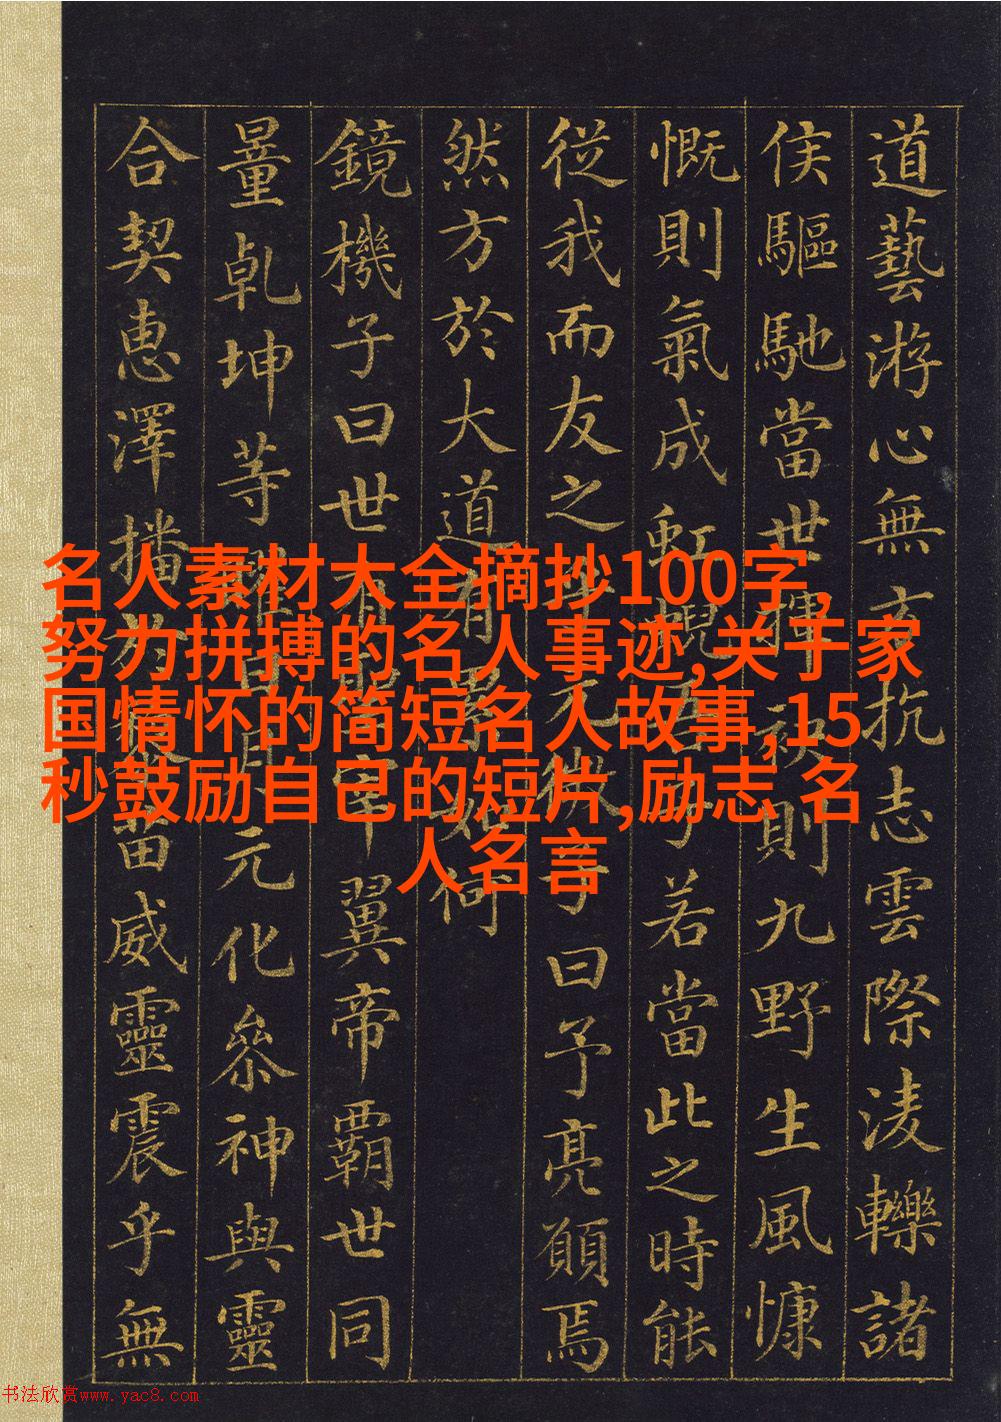 道藝游心無玄抗志雲際淩轢諸
侯驅馳當世揮袂則九野生風慷
慨則氣成虹蜺子若當此之時能
從我而友之玄微子曰予亮願焉
然方於大道有累如何
鏡機子曰世有宰翼帝霸世同
量乾坤等曜日月元化參神與靈
合契惠澤播於黎苗威靈震乎無
名人素材大全摘抄100字,
努力拼搏的名人事迹,关于家
国情怀的简短名人故事,15
秒鼓励自己的短片,励志 名
人名言
书法欣赏www.yac8.com